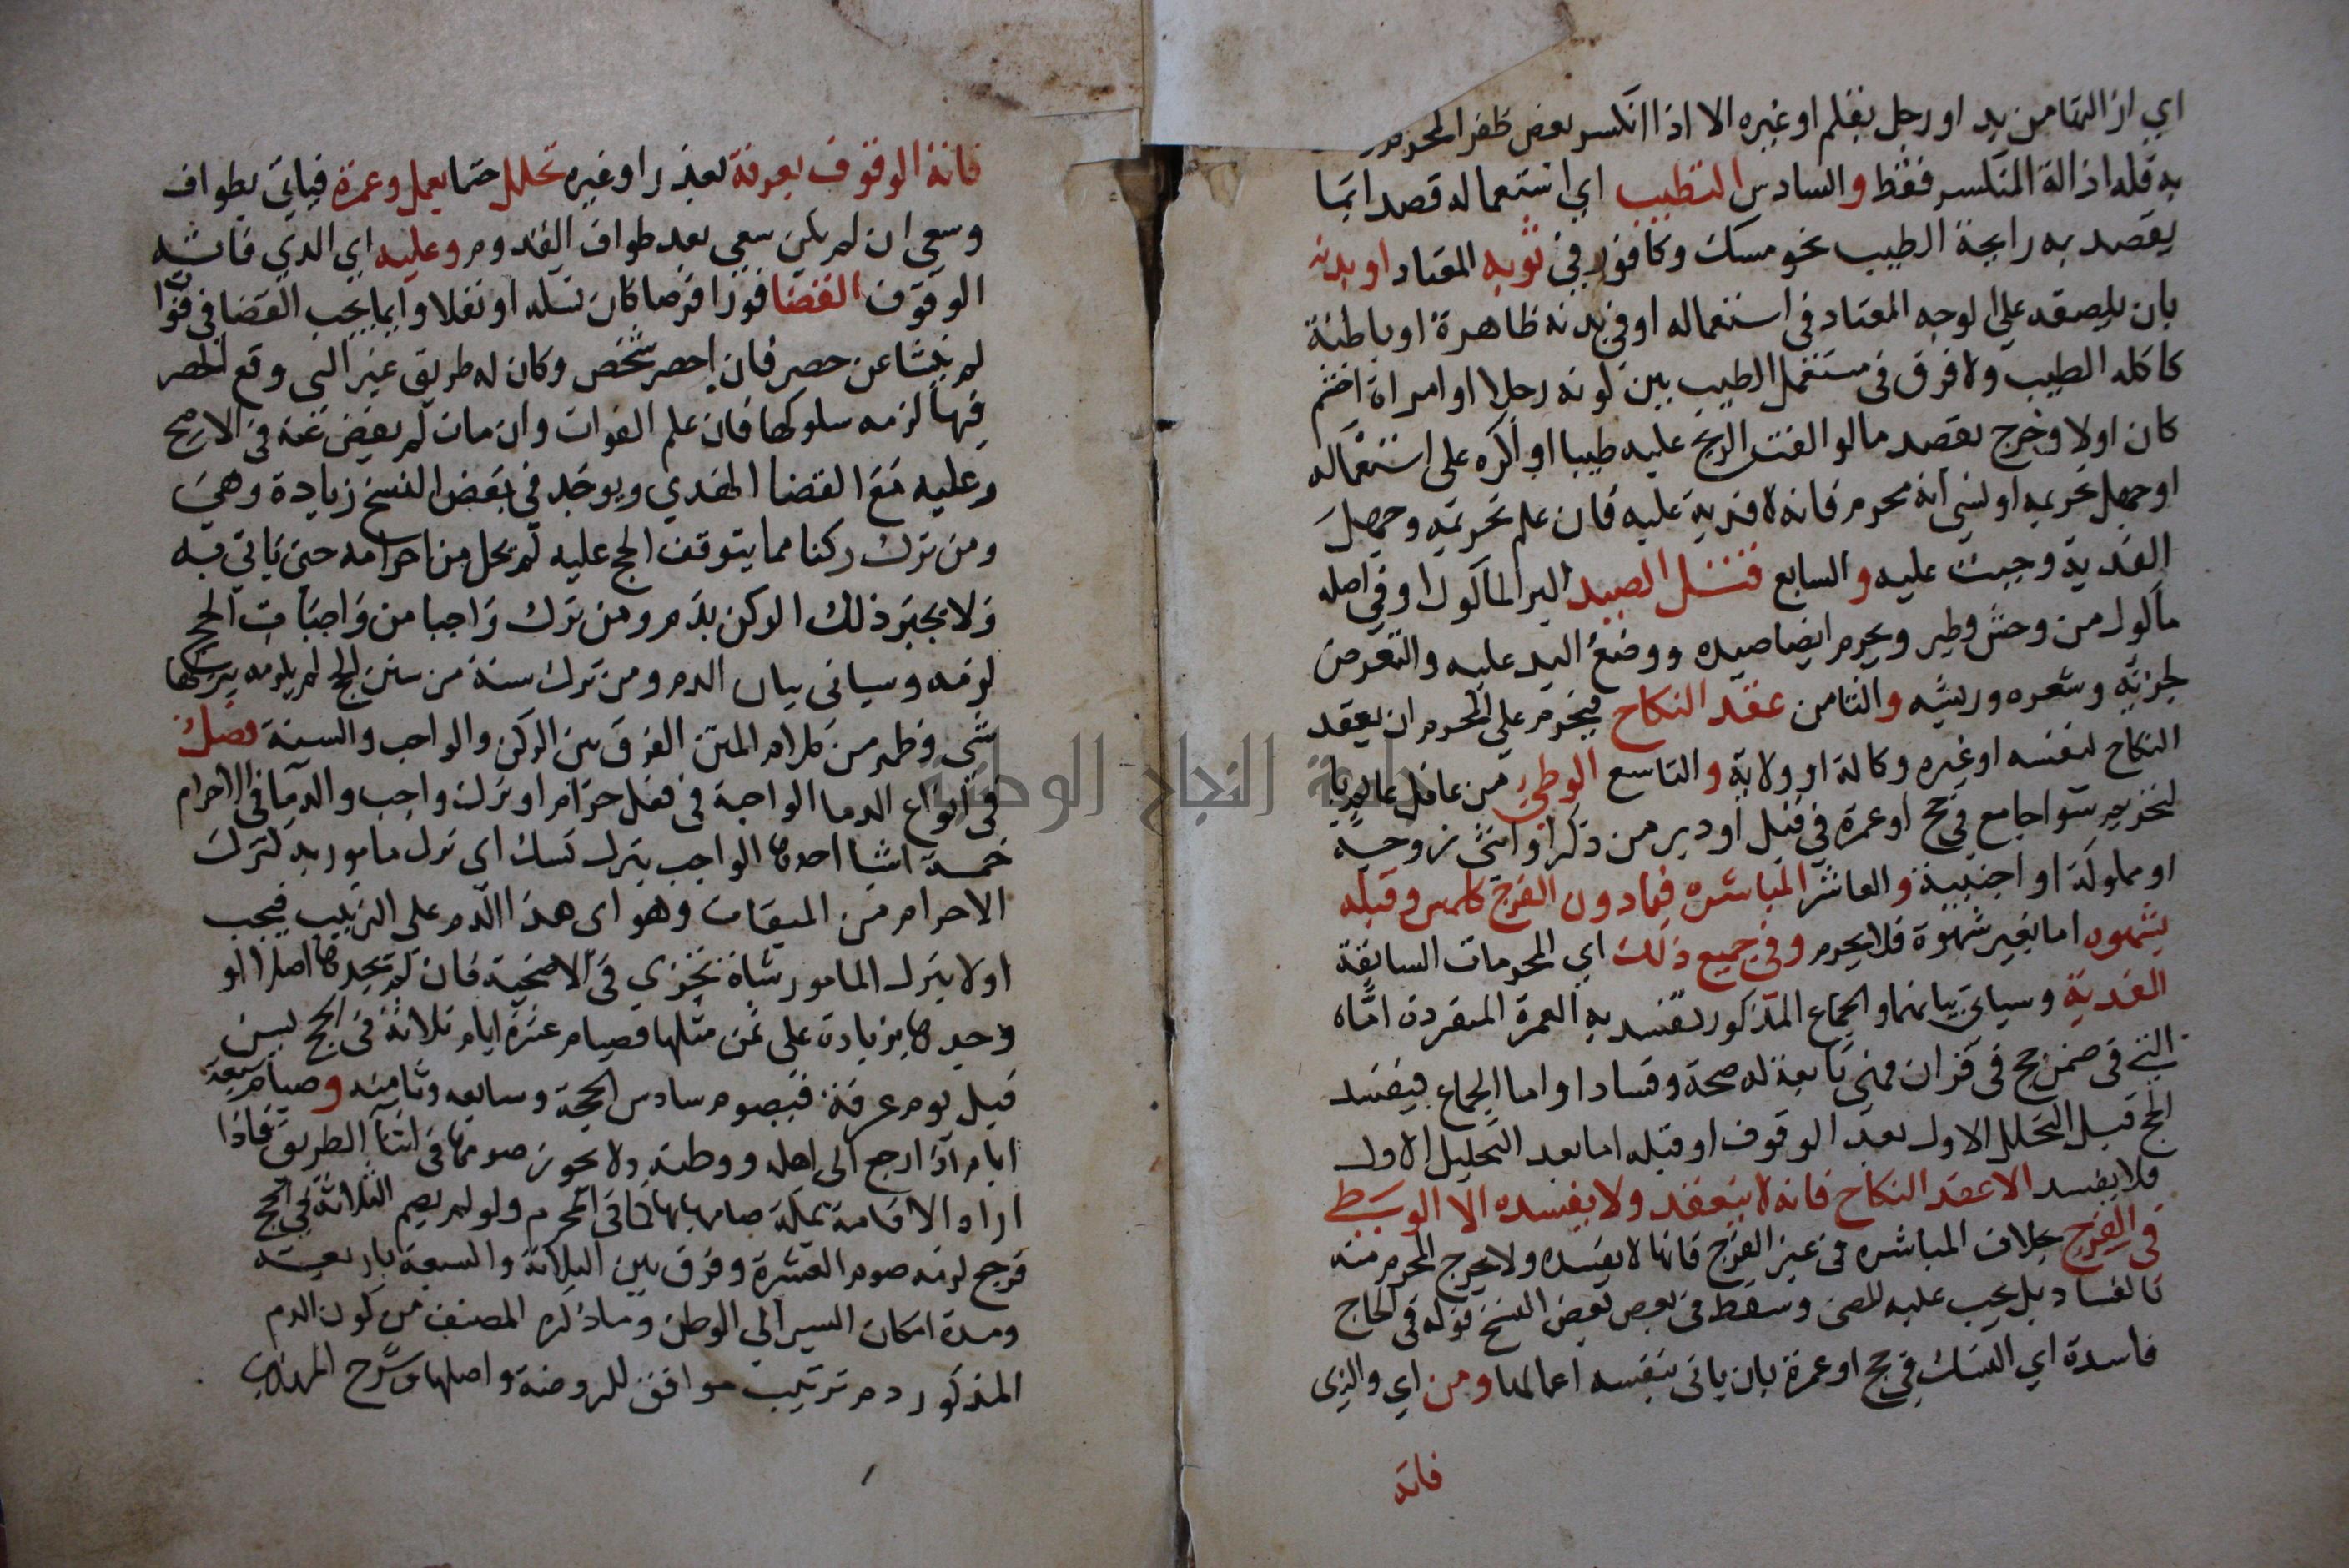 اي ازالتها من يد او رجل بقلم او غيره الا اذا انكسر بعض ظفر المحرم
به فله ازالة المنكسر فقط والسادس التطيب اي استعماله قصدا بما
يقصد به رايحة الطيب نحو مسك وكافور في ثوبه المعتاد او بدنه
بان يلصقه علي الوجه المعتاد في استعماله او في بدنه ظاهرة او باطنة
كاكله الطيب ولا فرق في مستعمل الطيب بين كونه رجلا او امراة اخشم
كان اولا وخرج بقصد ما لو القت الريح عليه طيبا او اكره على استعماله
او جهل تحريمه او نسي انه محرم فانه لا فدية عليه فان علم تحريمه وجهل
الفدية وجبت عليه والسابع قتل الصيد البر الماكول او في اصله
ماكول من وحش وطير ويحرم ايضا صيده ووضع اليد عليه والتعرض
لجزئه وشعره وريشه والثامن عقد النكاح فيحرم علي المحرم ان يعقد
النكاح لنفسه او غيره وكالة او ولاية والتاسع الوطي من عاقل عالم با
لتحريم سوا جامع في حج او عمرة في قبل او دبر من ذكر او انثي زوجة
او مملوكة او اجنبية والعاشر المباشره فيما دون الفرج كلمس وقبله
بشهوه اما بغير شهوة فلا يحرم وفي جميع ذلك اي المحرمات السابقة
الفدية وسياتي بيانها والجماع المذكور تفسد به العمرة المفردة اما
التي في ضمن حج في قران فهي تابعة له صحة وفسادا واما الجماع فيفسد
الحج قبل التحلل الاول بعد الوقوف او قبله اما بعد التحليل الاول
فلا يفسد الا عقد النكاح فانه لا ينعقد ولا يفسده الا الوسط
في الفرج بخلاف المباشره في غير الفرج فانها لا تفسده ولا يخرج المحرم منه
بالفساد بل يجب عليه المضي وسقط في بعض بعض النسخ قوله في الحاج
فاسدة اي النسك في حج او عمرة بان ياتي بنفسه اعمالها ومن اي والذي
فاته
فاته الوقوف بعرفة بعذر او غيره تحلل حتما بعمل وعمرة فياتي بطواف
وسعي ان لم يكن سعي بعد طواف القدوم وعليه اي الذي فاته
الوقوف القضا فورا فرضا كان نسكه او نفلا وانما يجب القضا في فوا
لم ينشا عن حصر فان احصر شخص وكان له طريق غير التي وقع الحصر
فيها لزمه سلوكها فان علم الفوات وان مات لم يقض عنه في الاصح
وعليه مع القضا الهدي ويوجد في بعض النسخ زيادة وهي
ومن ترك ركنا مما يتوقف الحج عليه لم يحل من احرامه حتي ياتي به
ولا يجبر ذلك الركن بدم ومن ترك واجبا من واجبات الحج
لزمه وسياتي بيان الدم ومن ترك سنة من سنن الحج لم يلزمه بتركها
شي وظهر من كلام المتن الفرق بين الركن والواجب والسنة فصل
في انواع الدما الواجبة في فعل حرام او ترك واجب والدما في الاحرام
خمسة اشيا احدها الواجب بترك نسك اي ترك مامور به كترك
الاحرام من الميقات وهو اي هذا الدم على الترتيب فيجب
اولا بترك المامور شاة تجزي في الاضحية فان لم يجدها اصلا او
وجدها بزيادة علي ثمن مثلها فصيام عشرة ايام ثلاثة في الحج تسن
قبل يوم عرفة فيصوم سادس الحجة وسابعه وثامنه وصيام سبعة
ايام اذا رجع الي اهله ووطنه ولا يجوز صومها في اثنا الطريق فاذا
اراد الاقامة بمكة صامها بها كما في المحرم ولو لم يصم الثلاثة في الحج
فرجع لزمه صوم العشرة وفرق بين الثلاثة والسبعة باربعة
ومدة امكان السير الي الوطن وما ذكره المصنف من كون الدم
المذكور دم ترتيب موافق للروضة واصلها وشرح المهذب
جامعة النجاح الوطنية